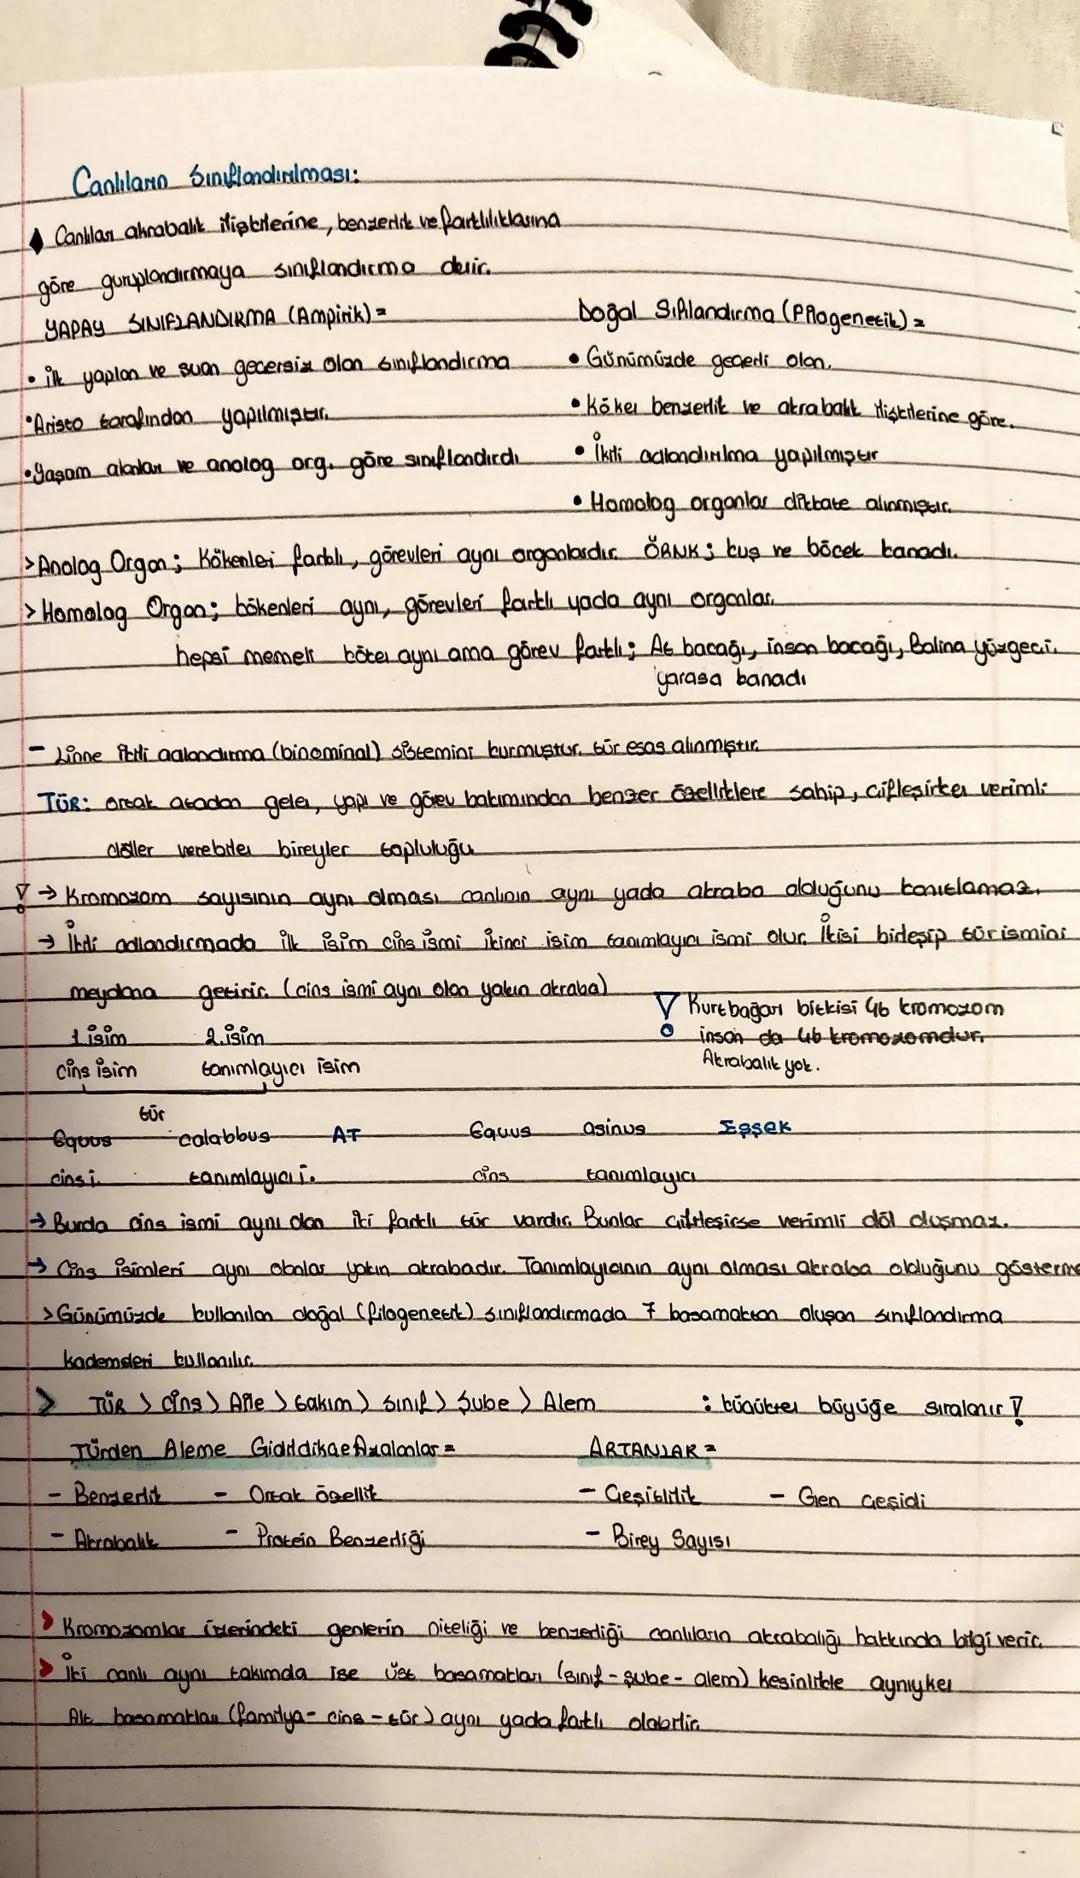 Canlıların Sınıflandırılması:
Canlıları akrabalık ilişkilerine, benzerlik ve farklılıklarına
göre guruplandırmaya sınıflandırma denir.
YAPAY SINIFLANDIRMA (Ampirik) =
• ilk yapılan ve şuan geçersiz olan sınıflandırma
• Aristo tarafından yapılmıştır.
• Yaşam alanları ve anolog org. göre sınıflandırdı
Doğal Sıflandırma (Filogenetik) =
• Günümüzde geçerli olan.
• Köken benzerlik ve akrabalık ilişkilerine göre.
• İkili adlandırılma yapılmıştır
• Homolog organlar dikkate alınmıştır.
> Anolog Organ; Kökenleri farklı, görevleri aynı organlardır. ÖRNK; kuş ve böcek kanadı.
> Homolog Organ; kökenleri aynı, görevleri farklı yada aynı organlar.
hepsi memeli köken aynı ama görev farklı; At bacağı, insan bacağı, Balina yüzgeci.
yarasa kanadı
- Linne ikili adlandırma (binominal) sistemini kurmuştur. tür esas alınmıştır.
TÜR: ortak atadan gelen, yapı ve görev bakımından benzer özelliklere sahip, çifleşirken verimli
döller verebilen bireyler topluluğu
! → Kromozom sayısının aynı olması canlının aynı yada akraba olduğunu kanıtlamaz.
→ İkili adlandırmada ilk isim cins ismi ikinci isim tanımlayıcı ismi olur. İkisi birleşip tür ismini
meydana getirir. (cins ismi aynı olan yakın akraba)
1.isim 2.isim
cins isim tanımlayıcı isim
! Kurtbağarı bitkisi 46 kromozom
insan da 46 kromozomdur.
Akrabalık yok.
tür
Equus calabbus AT Equus asinus Eşşek
cins i. tanımlayıcı i. cins tanımlayıcı
→ Burda cins ismi aynı olan iki farklı tür vardır. Bunlar çiftleşirse verimli döl oluşmaz.
→ Cins isimleri aynı olanlar yakın akrabadır. Tanımlayıcının aynı olması akraba olduğunu gösterme
> Günümüzde kullanılan doğal (filogenetik) sınıflandırmada 7 basamaktan oluşan sınıflandırma
kademeleri kullanılır.
> TÜR > Cins > Aile > takım > sınıf > Şube > Alem : küçükten büyüğe sıralanır !
Türden Aleme Gidildikçe Azalanlar = ARTANLAR =
- Benzerlik - Ortak özellik - Çeşitlilik - Gen çeşidi
- Akrabalık - Protein Benzerliği - Birey Sayısı
> Kromozomlar üzerindeki genlerin niteliği ve benzerliği canlıların akrabalığı hakkında bilgi verir.
> İki canlı aynı takımda ise üst basamakları (sınıf - şube - alem) kesinlikle aynıyken
Alt basamakları (familya - cins - tür) aynı yada farklı olabilir.